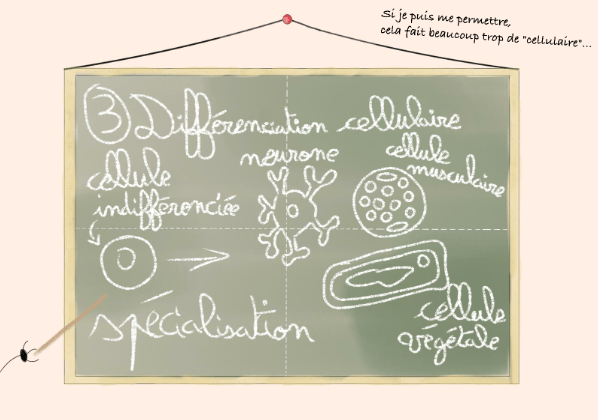 Si je puis me permettre,
cela fait beaucoup trop de "cellulaire"...
③ Différenciation cellulaire
cellule
indifférenciée
neurone
cellule
musculaire
spécialisation
cellule
végétale